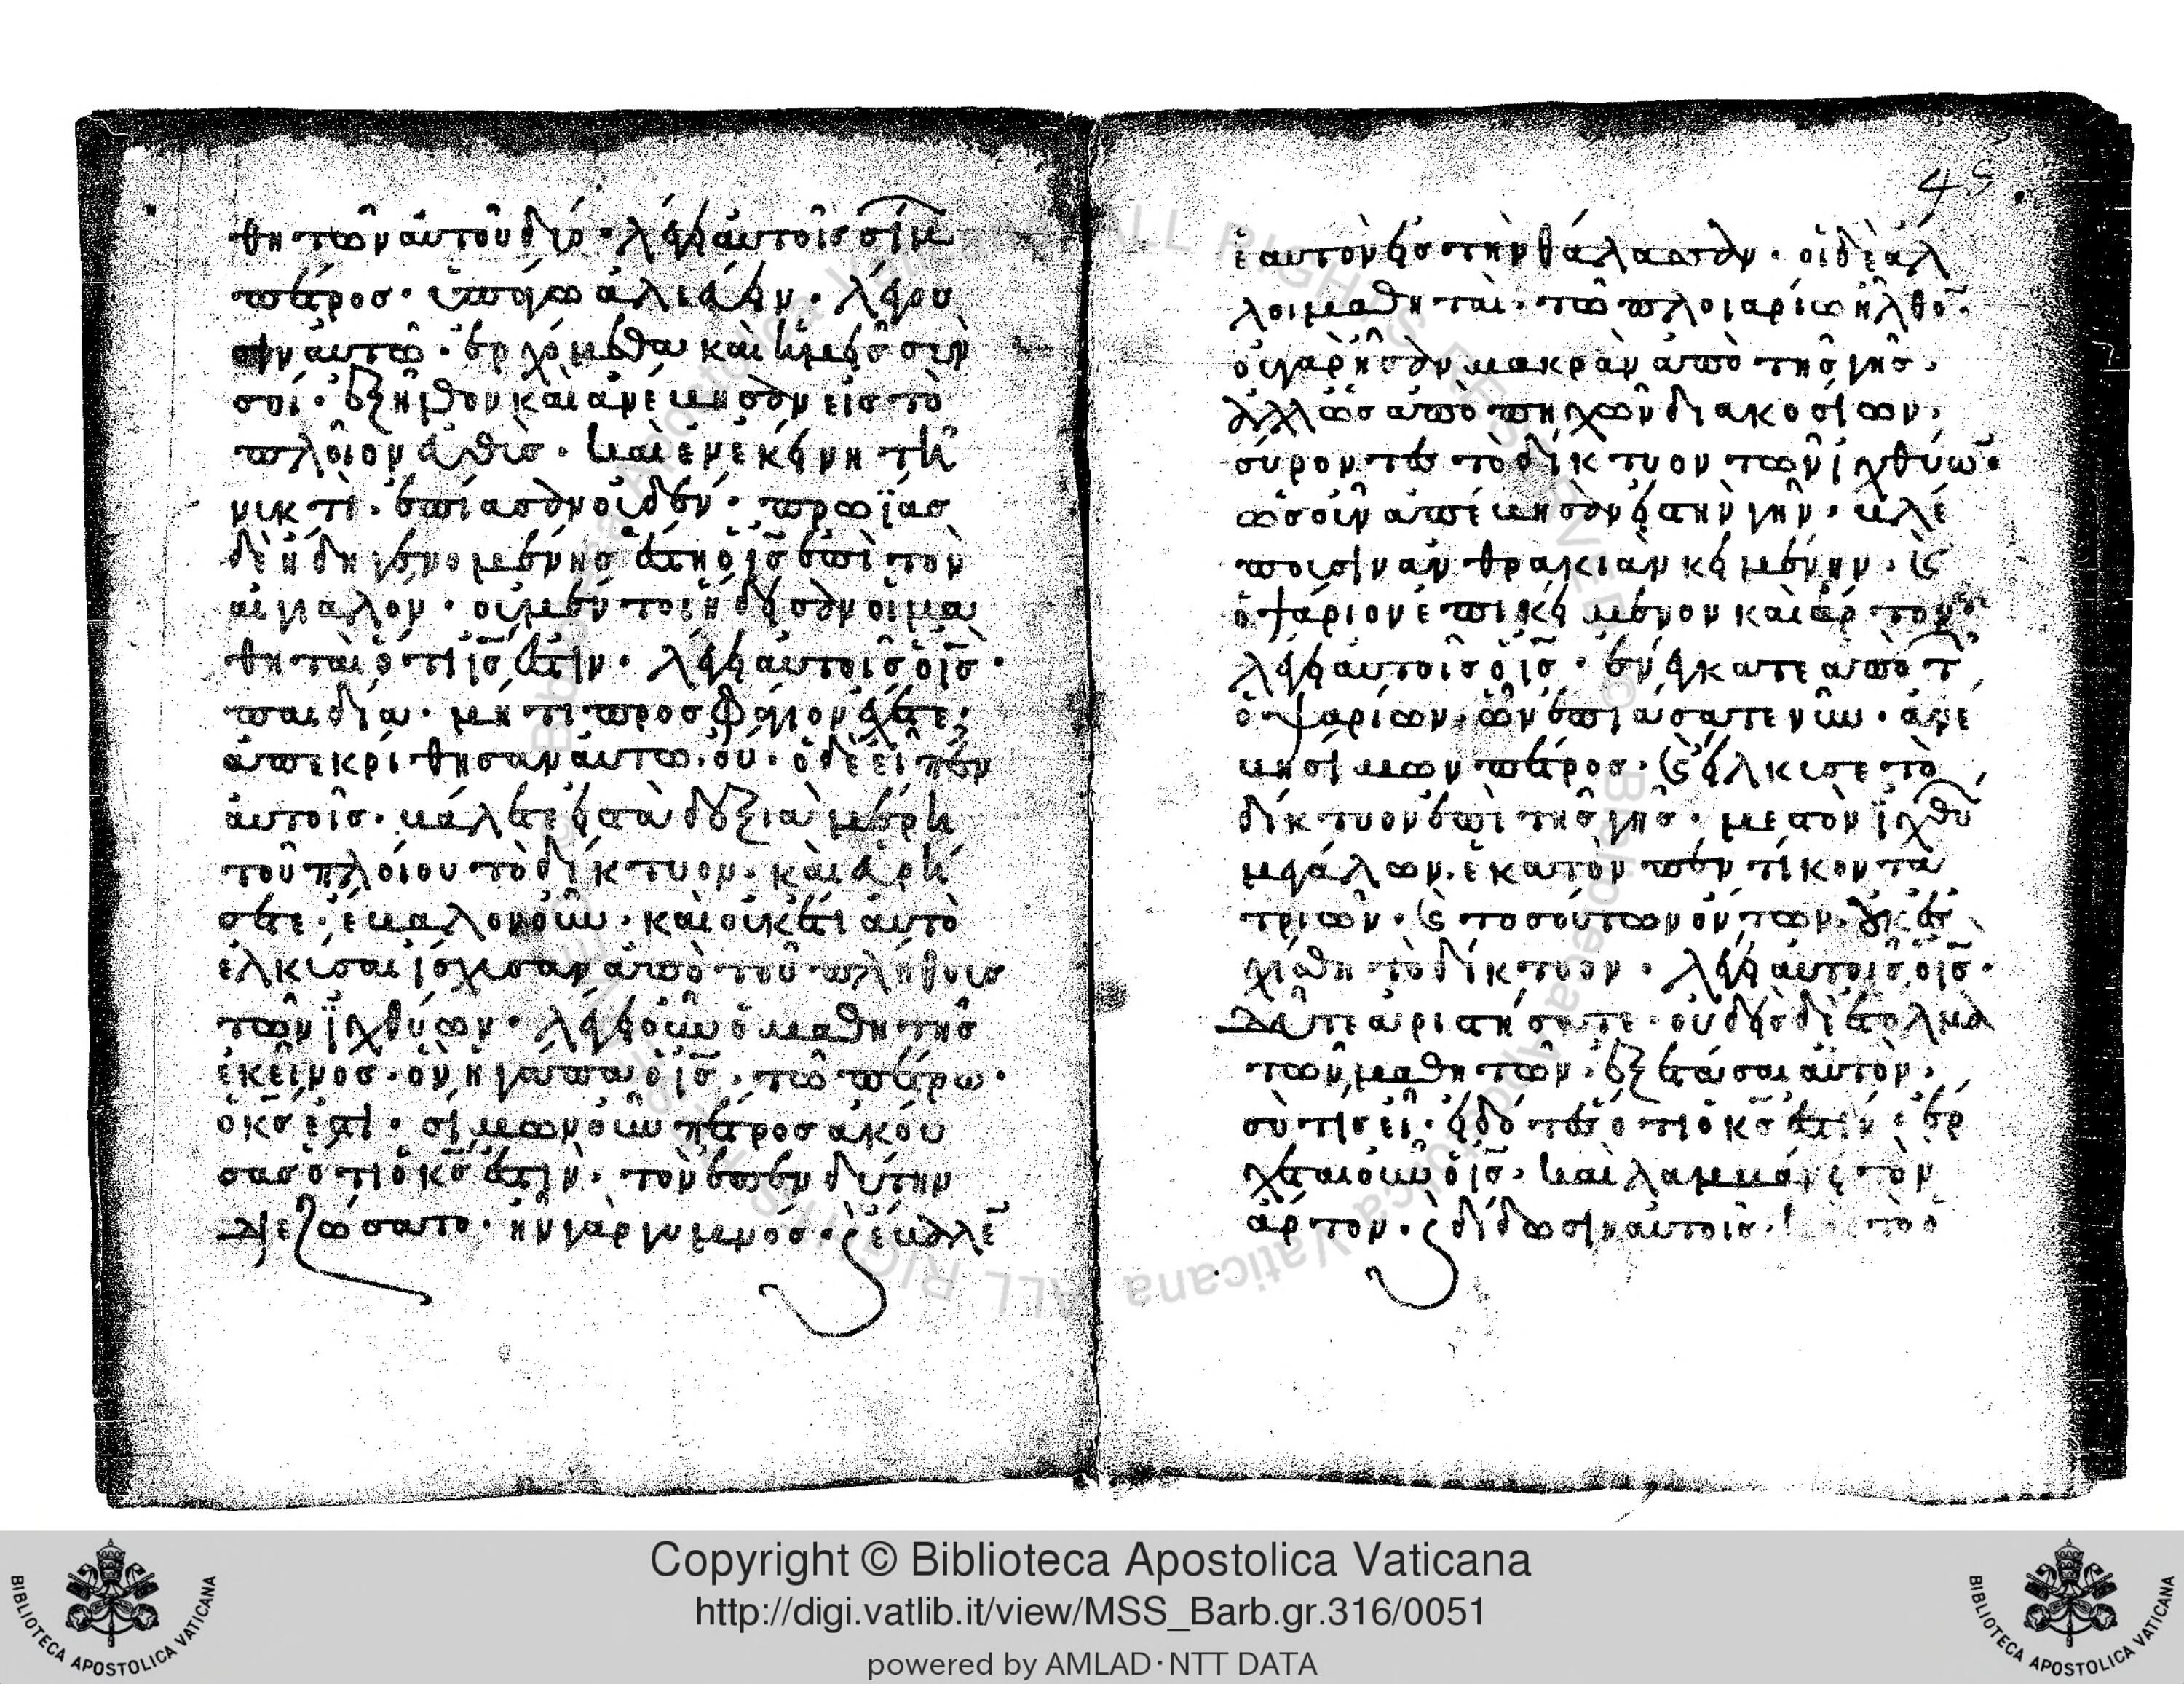 θητῶν αὐτοῦ δύο· λέγει αὐτοῖς σίμων
πέτρος· ὑπάγω ἁλιεύειν· λέγου
σιν αὐτῶ· ἐρχόμεθα καὶ ἡμεῖς σὺν
σοί· ἐξῆλθον καὶ ἀνέβησαν εἰς τὸ
πλοῖον εὐθὺς· καὶ ἐν ἐκείνη τῆ
νυκτὶ· ἐπίασαν οὐδέν· πρωΐας
δὲ ἤδη γενομένης ἔστη ὁ ις ἐπὶ τὸν
αἰγιαλον· οὐ μέν τοι ἤδεισαν οἱ μα
θηταὶ ὅτι ις ἐστίν· λέγει αὐτοῖς ὁ ις·
παιδία· μή τι προσφάγιον ἔχετε;
ἀπεκρίθησαν αὐτῶ· οὐ· ὁ δὲ εἶπεν
αὐτοῖς· βάλετε εἰς τὰ δεξιὰ μέρη
τοῦ πλοίου τὸ δίκτυον· καὶ εὑρή
σετε· ἔβαλον οὖν· καὶ οὐκέτι αὐτὸ
ἑλκύσαι ἴσχυσαν ἀπὸ τοῦ πλήθους
τῶν ἰχθύων· λέγει οὖν ὁ μαθητὴς
ἐκεῖνος· ὃν ἠγάπα ὁ ις· τῶ πέτρω·
ὁ κς ἐστί· σίμων οὖν πέτρος ἀκού
σας ὅτι ὁ κς ἐστὶν· τὸν ἐπενδύτην
διεζώσατο· ἦν γὰρ γυμνός· καὶ ἔβαλεν
45
ἑαυτὸν εἰς τὴν θάλασσαν· οἱ δὲ ἄλ
λοι μαθηταὶ· τῶ πλοιαρίω ἦλθον·
οὐ γὰρ ἦσαν μακρὰν ἀπὸ τῆς γῆς·
ἀλλ' ὡς ἀπὸ πηχῶν διακοσίων·
σύροντες τὸ δίκτυον τῶν ἰχθύων·
ὡς οὖν ἀπέβησαν εἰς τὴν γῆν· βλέ
πουσιν ἀνθρακιὰν κειμένην· καὶ
ὀψάριον ἐπικείμενον καὶ ἄρτον·
λέγει αὐτοῖς ὁ ις· ἐνέγκατε ἀπὸ τῶν
ὀψαρίων· ὧν ἐπιάσατε νῦν· ἀνέ
βη σίμων πέτρος· καὶ εἵλκυσε τὸ
δίκτυον ἐπὶ τῆς γῆς· μεστὸν ἰχθύων
μεγάλων· ἑκατὸν πεντίκοντα
τριῶν· καὶ τοσούτων ὄντων· οὐκ ἐσ
χίσθη τὸ δίκτυον· λέγει αὐτοῖς ὁ ις·
δεῦτε ἀριστήσατε· οὐδεὶς δὲ ἐτόλμα
τῶν μαθητῶν· ἐξετάσαι αὐτόν·
σὺ τίς εἶ· εἰδότες ὅτι ὁ κς ἐστίν· ἔρ
χεται οὖν ὁ ις· καὶ λαμβάνει τὸν
ἄρτον· καὶ δίδωσιν αὐτοῖς·
Copyright © Biblioteca Apostolica Vaticana
http://digi.vatlib.it/view/MSS_Barb.gr.316/0051
powered by AMLAD·NTT DATA
BIBLIOTECA APOSTOLICA VATICANA
BIBLIOTECA APOSTOLICA VATICANA